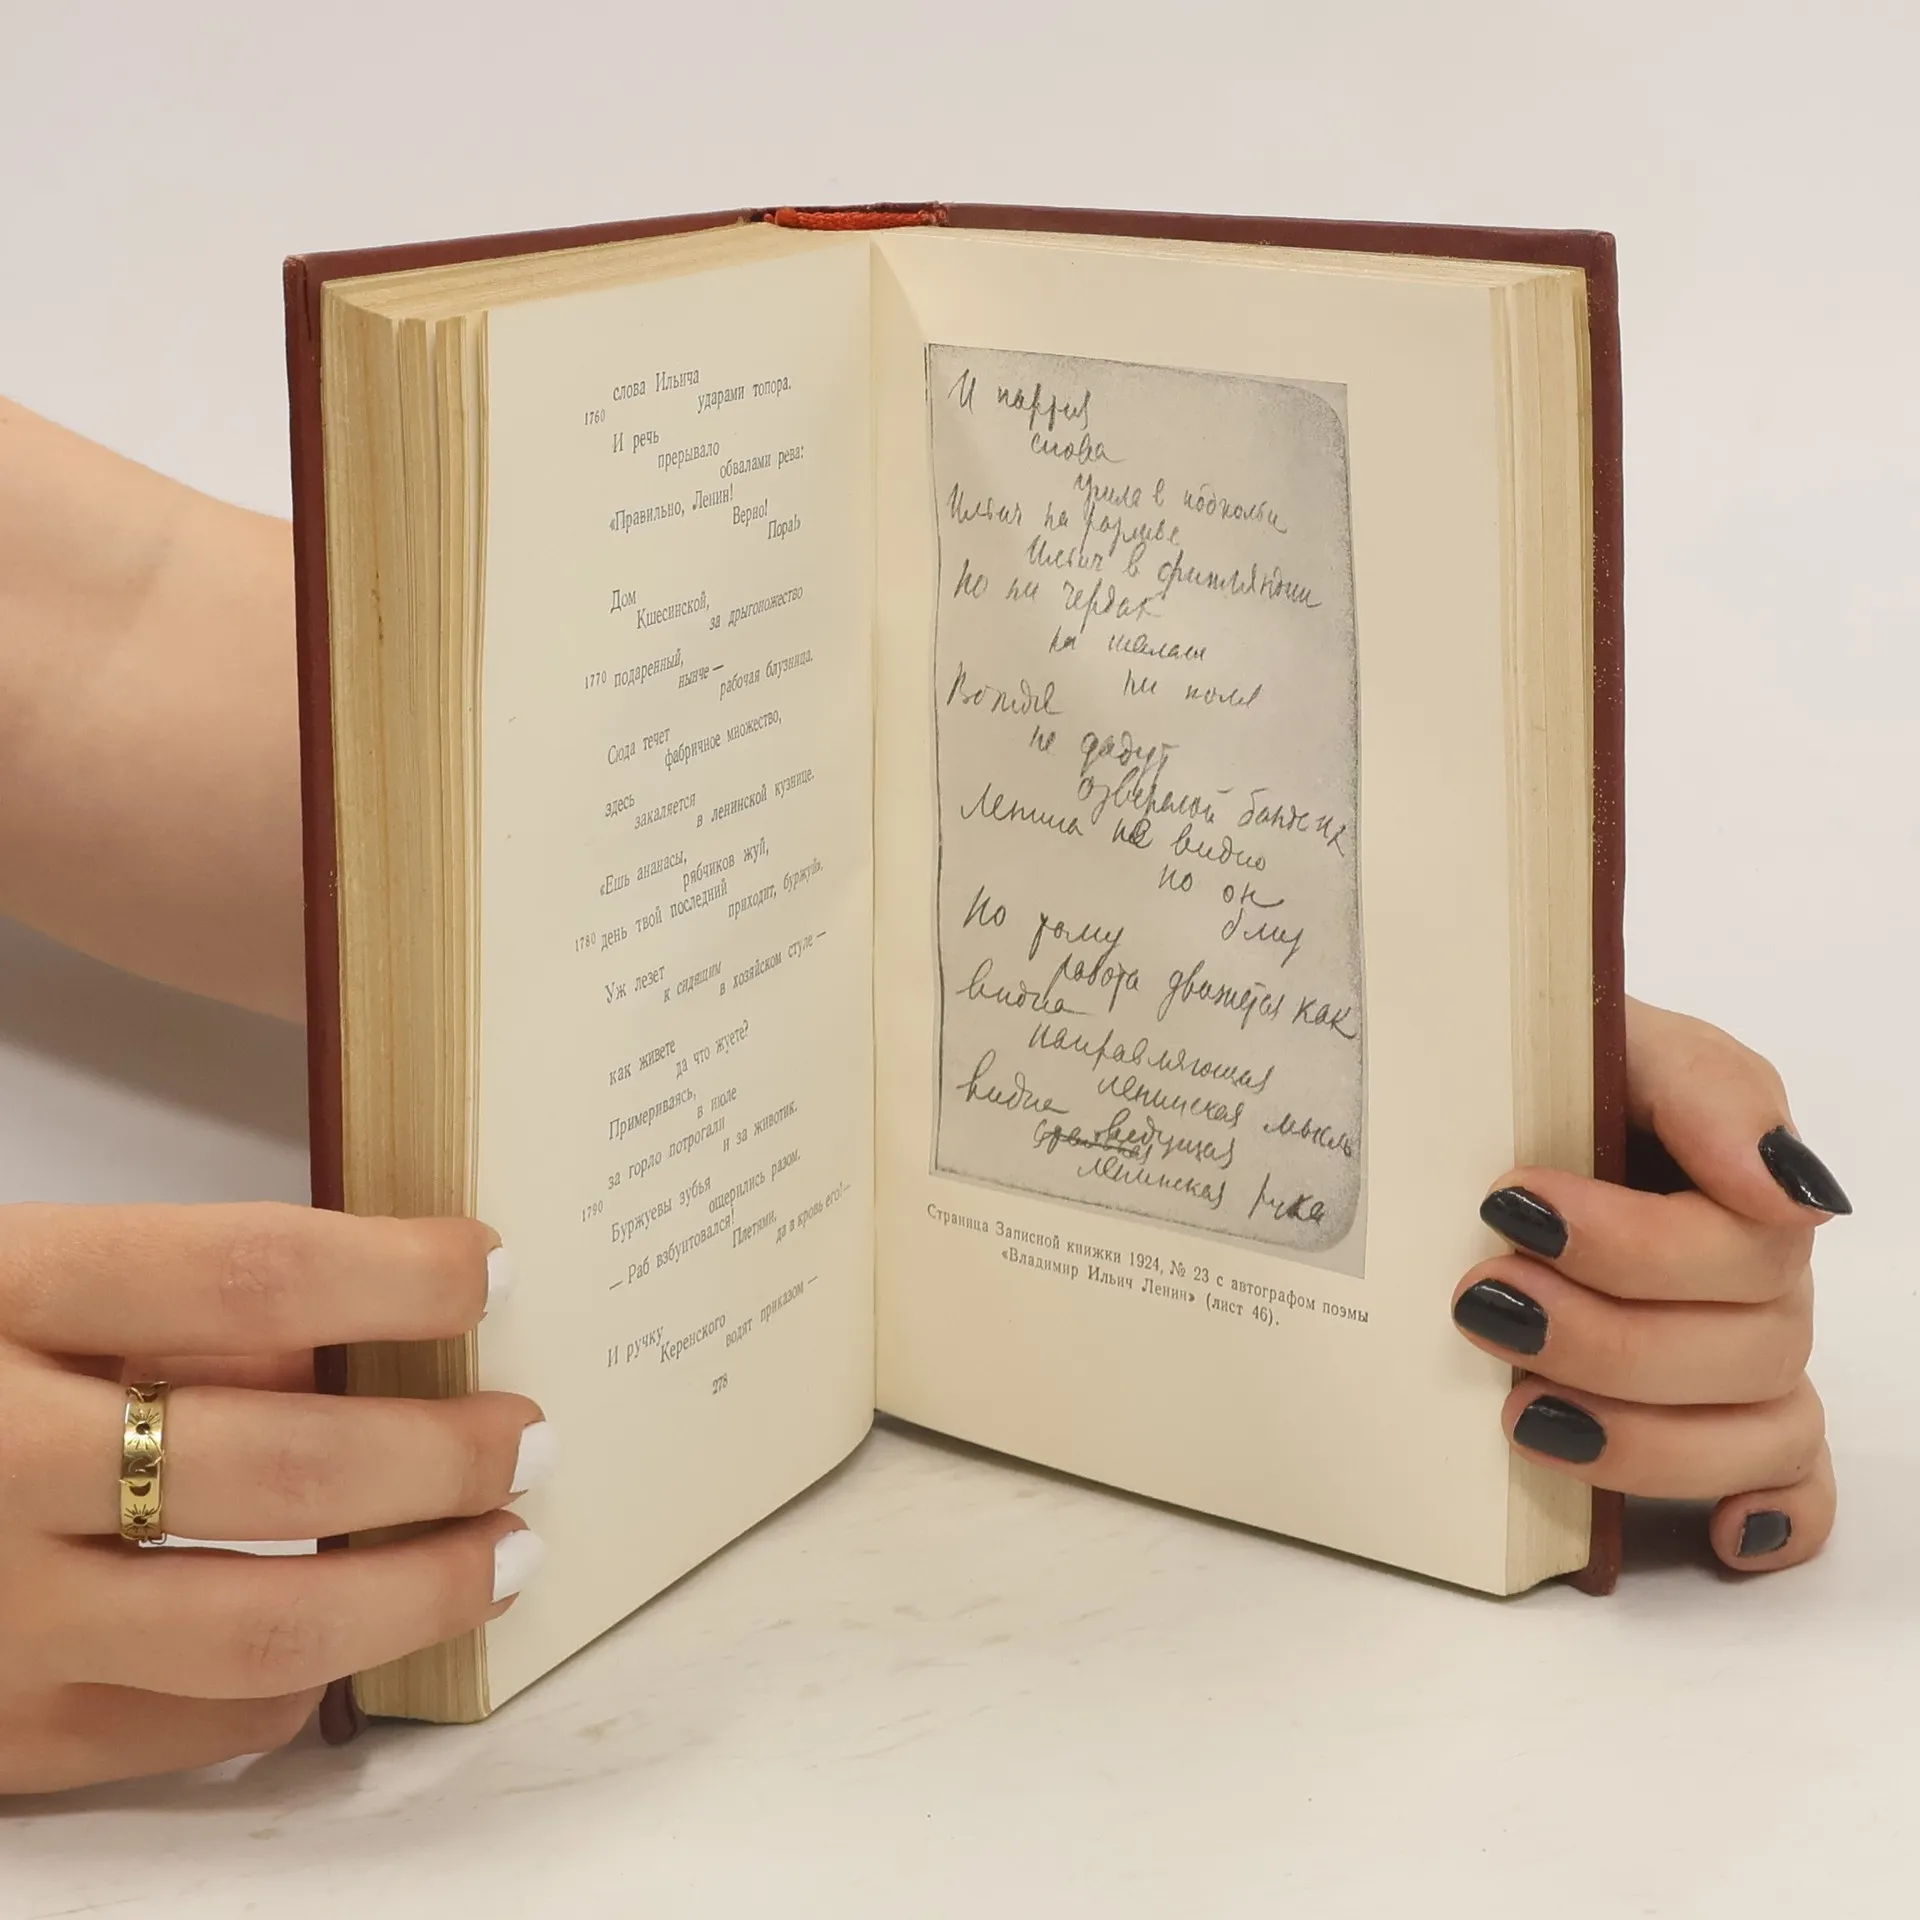 слова Ильича
1760 ударами топора.
И речь
прерывало
обвалами рева:
«Правильно, Ленин!
Верно!
Пора!»
Дом
Кшесинской,
за дрыгоножество
1770 подаренный,
нынче —
рабочая блузница.
Сюда течет
фабричное множество,
здесь
закаляется
в ленинской кузнице.
«Ешь ананасы,
рябчиков жуй,
1780 день твой последний
приходит, буржуй».
Уж лезет
к сидящим
в хозяйском стуле —
как живете
да что жуете?
Примериваясь,
в июле
за горло потрогали
и за животик.
1790 Буржуевы зубья
ощерились разом.
— Раб взбунтовался!
Плетями,
да в кровь его! —
И ручку
Керенского
водят приказом —
278
И партия
снова
ушла в подполье
Ильич на разливе
Ильич в финляндии
Но ни чердак
ни шалаш
ни поля
Вождя
не дадут
озверелой банде их
Ленина не видно
но он
близ
По тому
работа движется как
видна
направляющая
ленинская мысль
видна
ведущая
ленинская рука
Страница Записной книжки 1924, № 23 с автографом поэмы
«Владимир Ильич Ленин» (лист 46).